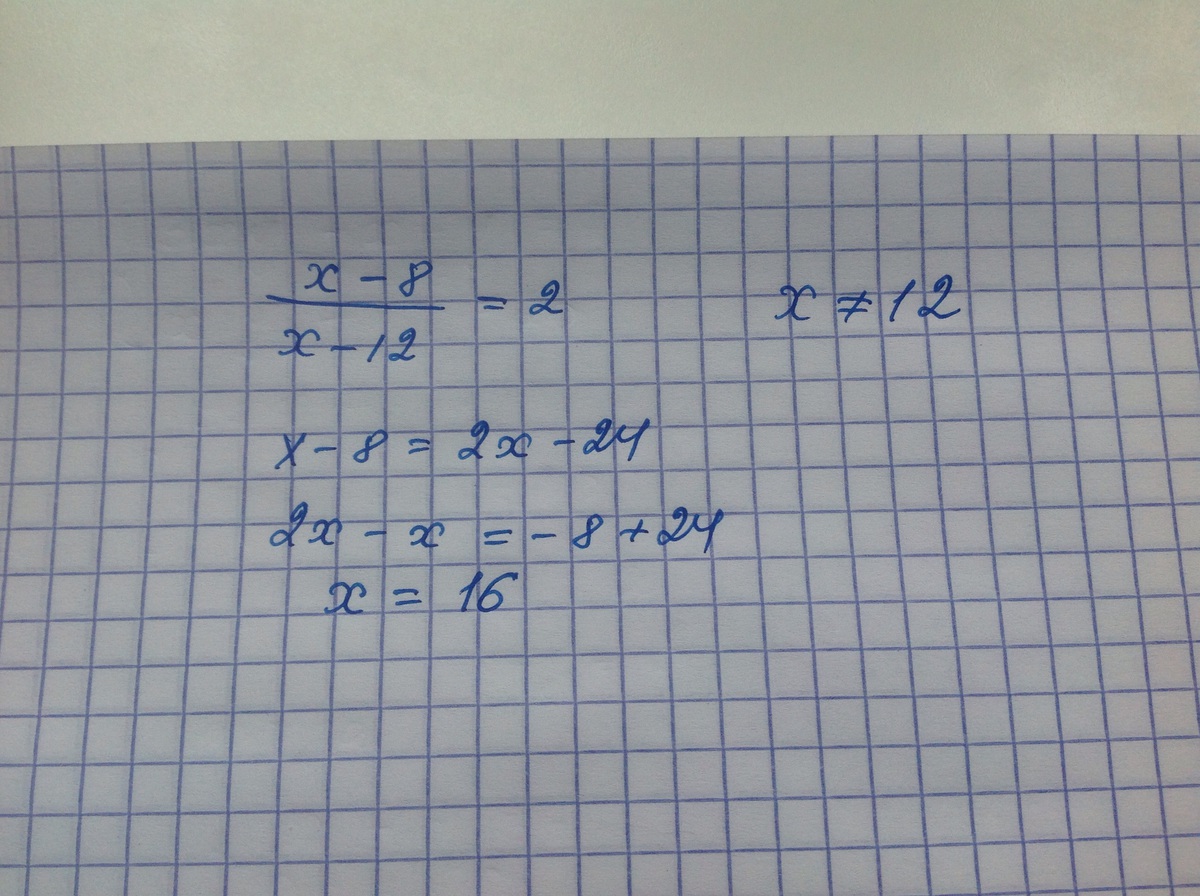 x - 8 / x - 12 = 2    x ≠ 12
x - 8 = 2x - 24
2x - x = - 8 + 24
x = 16